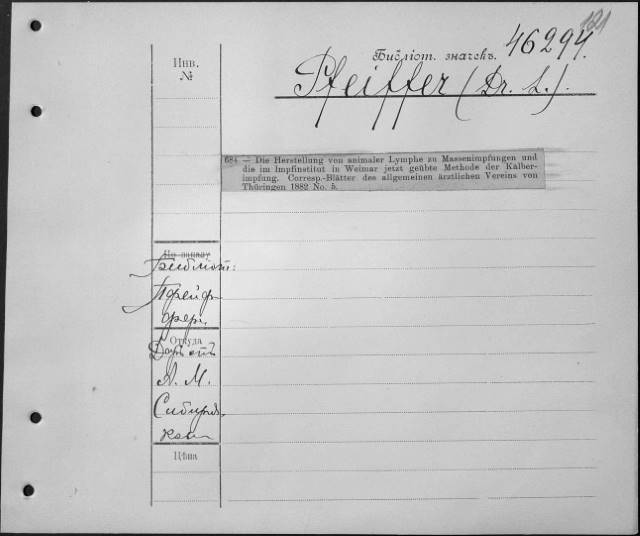 121
Инв.
№
Библіот. значекъ. 46294.
Pfeiffer (Dr. L.).
684 — Die Herstellung von animaler Lymphe zu Massenimpfungen und
die im Impfinstitut in Weimar jetzt geübte Methode der Kalber-
impfung. Corresp.-Blätter des allgemeinen ärztlichen Vereins von
Thüringen 1882 No. 5.
По какому
Библіот:
Пфейф-
фера.
Откуда
Даръ отъ
А. М.
Сибиряк-
Цѣна